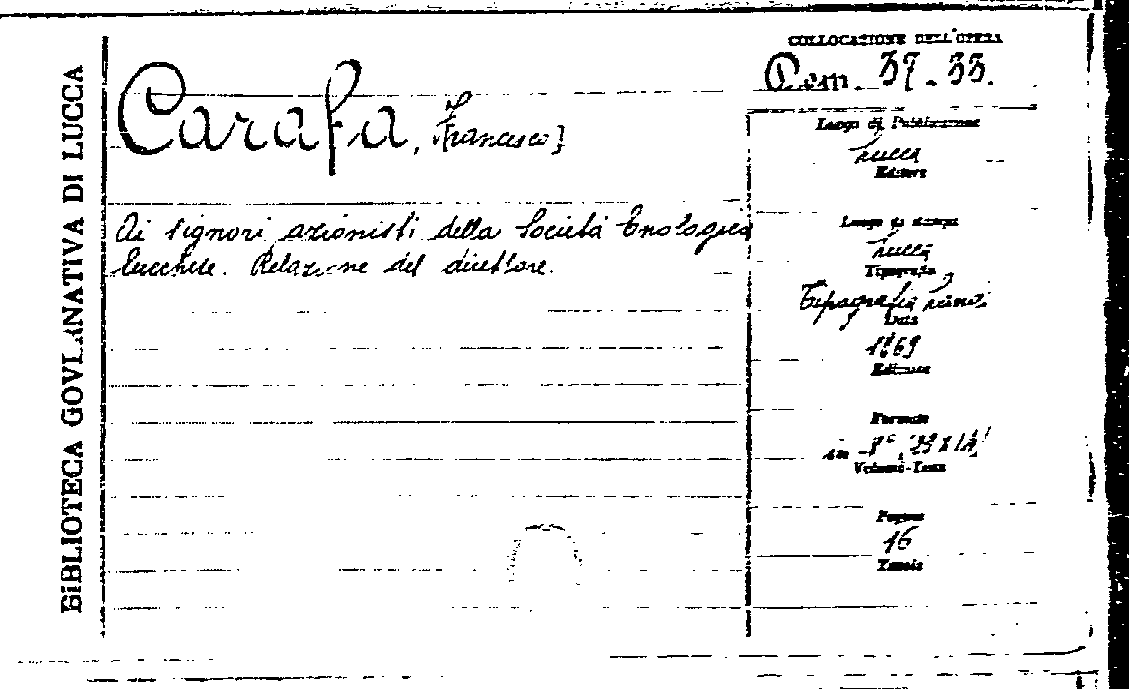 BIBLIOTECA GOVERNATIVA DI LUCCA
Carafa, Francesco]
Ai signori azionisti della Società Enologica
lucchese. Relazione del direttore.
COLLOCAZIONE DELL'OPERA
37-33.
Luogo di Pubblicazione
Lucca
Editore
Luogo di stampa
Lucca
Tipografia
Tipografia
Data
1869
Edizione
Formato
in -8°
Volumi-Tomi
Pagine
16
Tavole